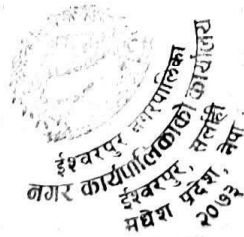 ईश्वरपुर नगरपालिका
नगर कार्यपालिकाको कार्यालय
ईश्वरपुर, सर्लाही
मधेश प्रदेश, नेपाल
२०७३